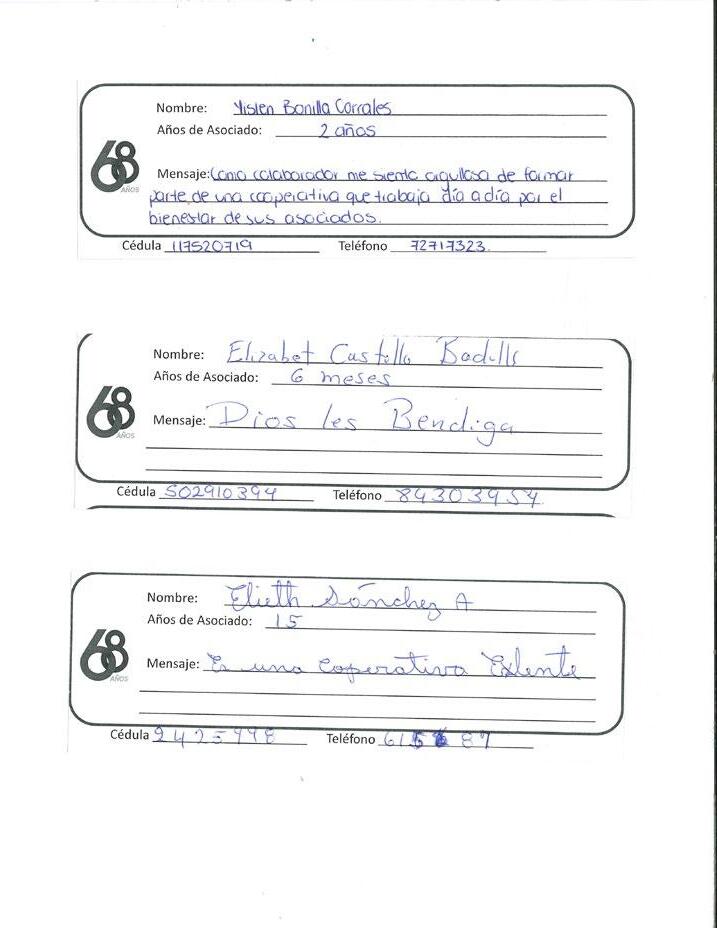 Nombre: Yislen Bonilla Corrales
Años de Asociado: 2 años
68
AÑOS
Mensaje: Como colaborador me siento orgullosa de formar
parte de una cooperativa que trabaja día a día por el
bienestar de sus asociados.
Cédula 117520719 Teléfono 72717323.
Nombre: Elizabet Castillo
Años de Asociado: 6 meses
68
AÑOS
Mensaje: Dios les Bendiga
Cédula 502910394 Teléfono 84303954
Nombre: Elieth Sánchez A
Años de Asociado: 15
68
AÑOS
Mensaje: Es una Coperativa Exlente
Cédula Teléfono